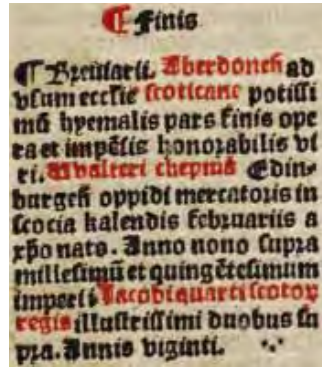 ¶ Finis
¶ Breuiarii. Aberdoneñ ad
vsum ecclie scoticane potissi
mū hyemalis pars finis ope
ra et impēsis honorabilis vi
ri. Walteri chepmā Edin-
burgeñ oppidi mercatoris in
scocia kalendis februariis a
xp̄o nato. Anno nono supra
millesimū et quingētesimum
imperii Iacobi quarti scotoꝝ
regis illustrissimi duobus su
pra. Annis viginti.